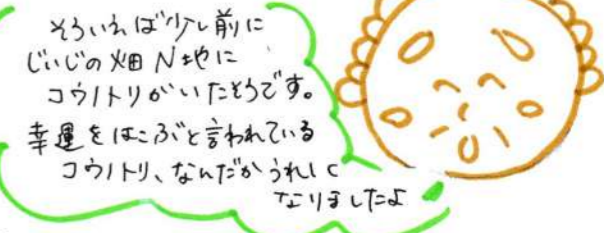 そういえば少し前に
じいじの畑N地に
コウノトリがいたそうです。
幸運をはこぶと言われている
コウノトリ、なんだかうれしく
なりましたよ